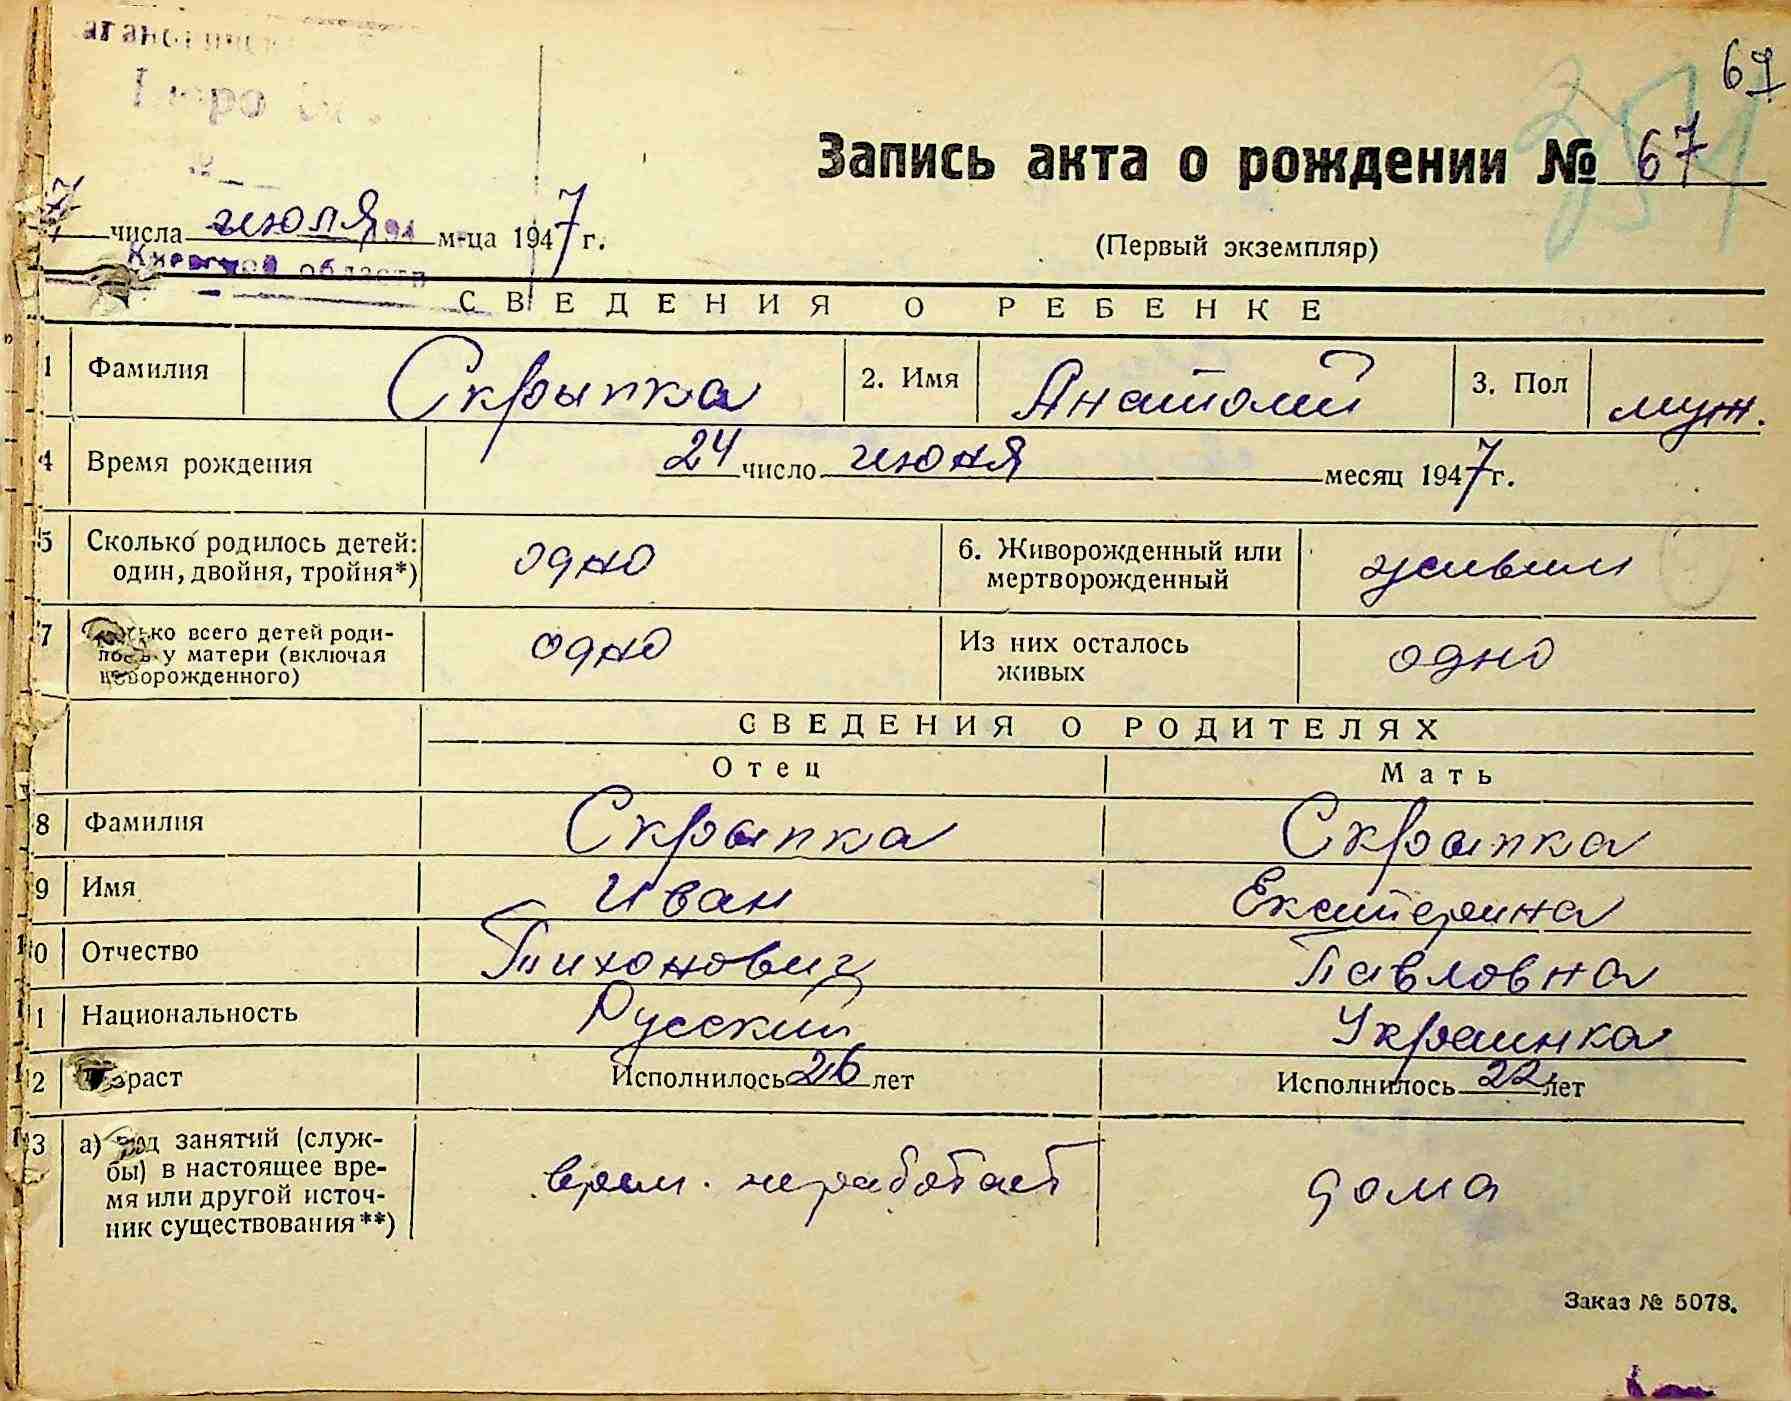 69
Бюро
Запись акта о рождении № 67
7 числа июля м-ца 1947 г.
(Первый экземпляр)
Киевской области
СВЕДЕНИЯ О РЕБЕНКЕ
1 Фамилия Скрыпка 2. Имя Анатолий 3. Пол муж.
4 Время рождения 24 число июня месяц 1947 г.
5 Сколько родилось детей: один, двойня, тройня*) одно 6. Живорожденный или мертворожденный живым
7 всего детей роди- у матери (включая новорожденного) одно Из них осталось живых одно
СВЕДЕНИЯ О РОДИТЕЛЯХ
Отец Мать
8 Фамилия Скрыпка Скрыпка
9 Имя Иван Екатерина
10 Отчество Тихонович Павловна
11 Национальность Русский Украинка
12 Возраст Исполнилось 26 лет Исполнилось 22 лет
13 а) род занятий (служ-
бы) в настоящее вре-
мя или другой источ-
ник существования**) врем. не работает дома
Заказ № 5078.